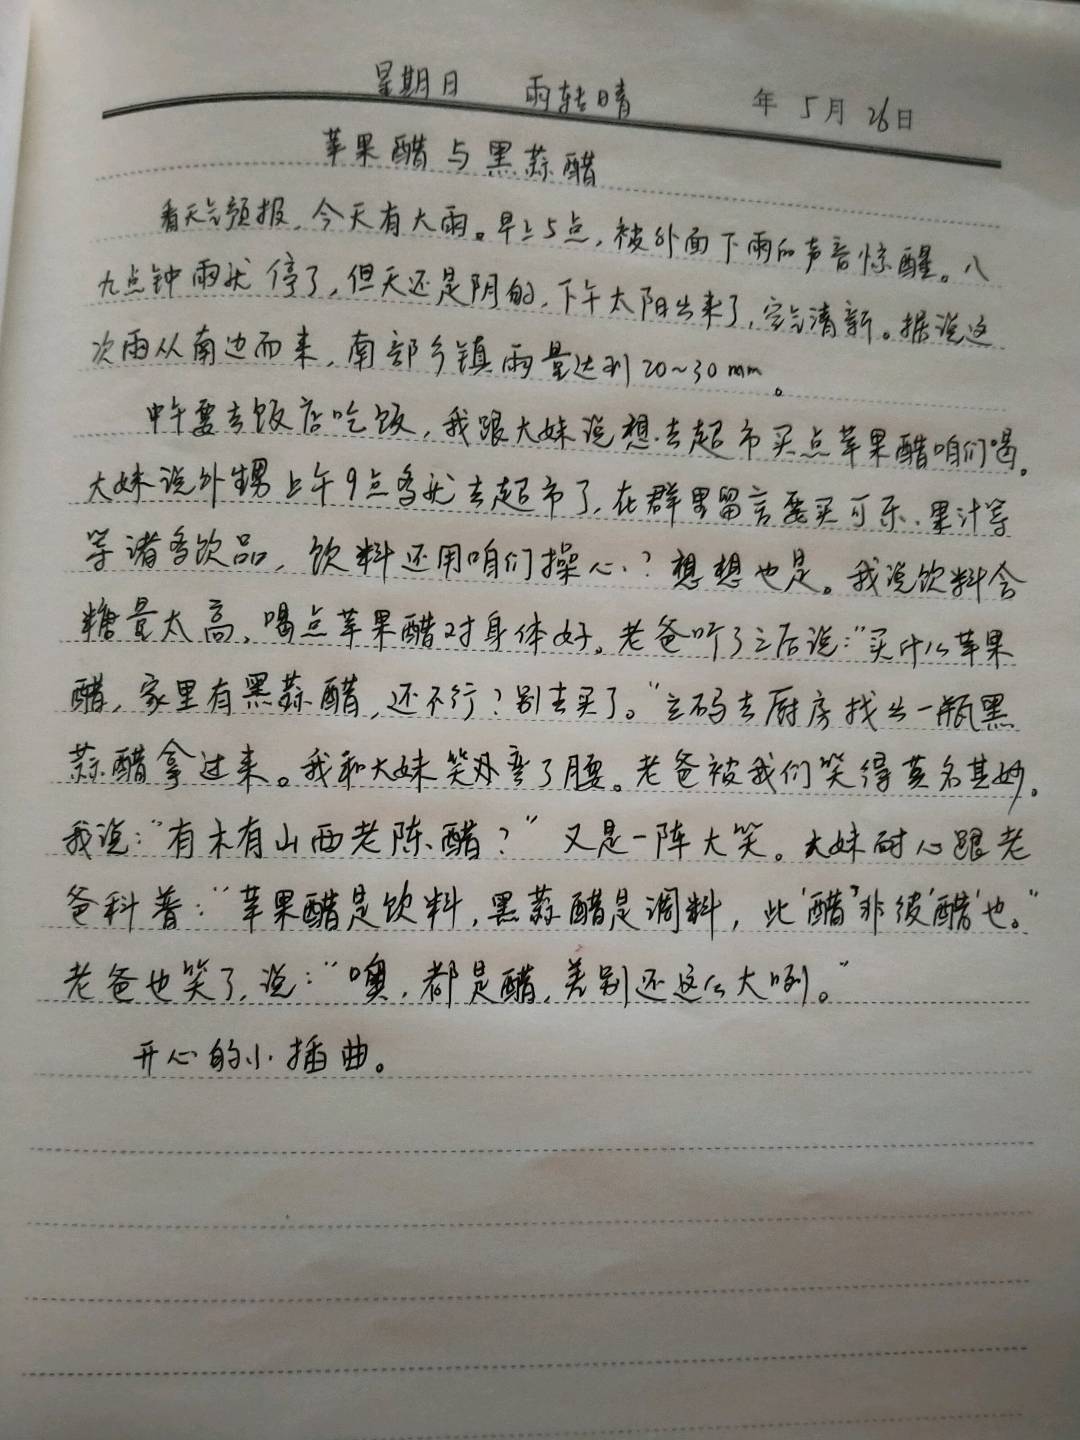 星期日 雨转晴 年 5月 26日
苹果醋与黑蒜醋
看天气预报,今天有大雨。早上5点,被外面下雨的声音惊醒。八
九点钟雨就停了,但天还是阴的,下午太阳出来了,空气清新。据说这
次雨从南边而来,南部乡镇雨量达到20~30mm。
中午要去饭店吃饭,我跟大妹说想去超市买点苹果醋咱们喝。
大妹说外甥上午9点多就去超市了,在群里留言要买可乐、果汁等
等诸多饮品,饮料还用咱们操心?想想也是。我说饮料含
糖量太高,喝点苹果醋对身体好。老爸听了之后说:“买什么苹果
醋,家里有黑蒜醋,还不行?别去买了。”立码去厨房找出一瓶黑
蒜醋拿过来。我和大妹笑弯了腰。老爸被我们笑得莫名其妙。
我说:“有木有山西老陈醋?”又是一阵大笑。大妹耐心跟老
爸科普:“苹果醋是饮料,黑蒜醋是调料,此‘醋’非彼‘醋’也。”
老爸也笑了,说:“噢,都是醋,差别还这么大咧。”
开心的小插曲。